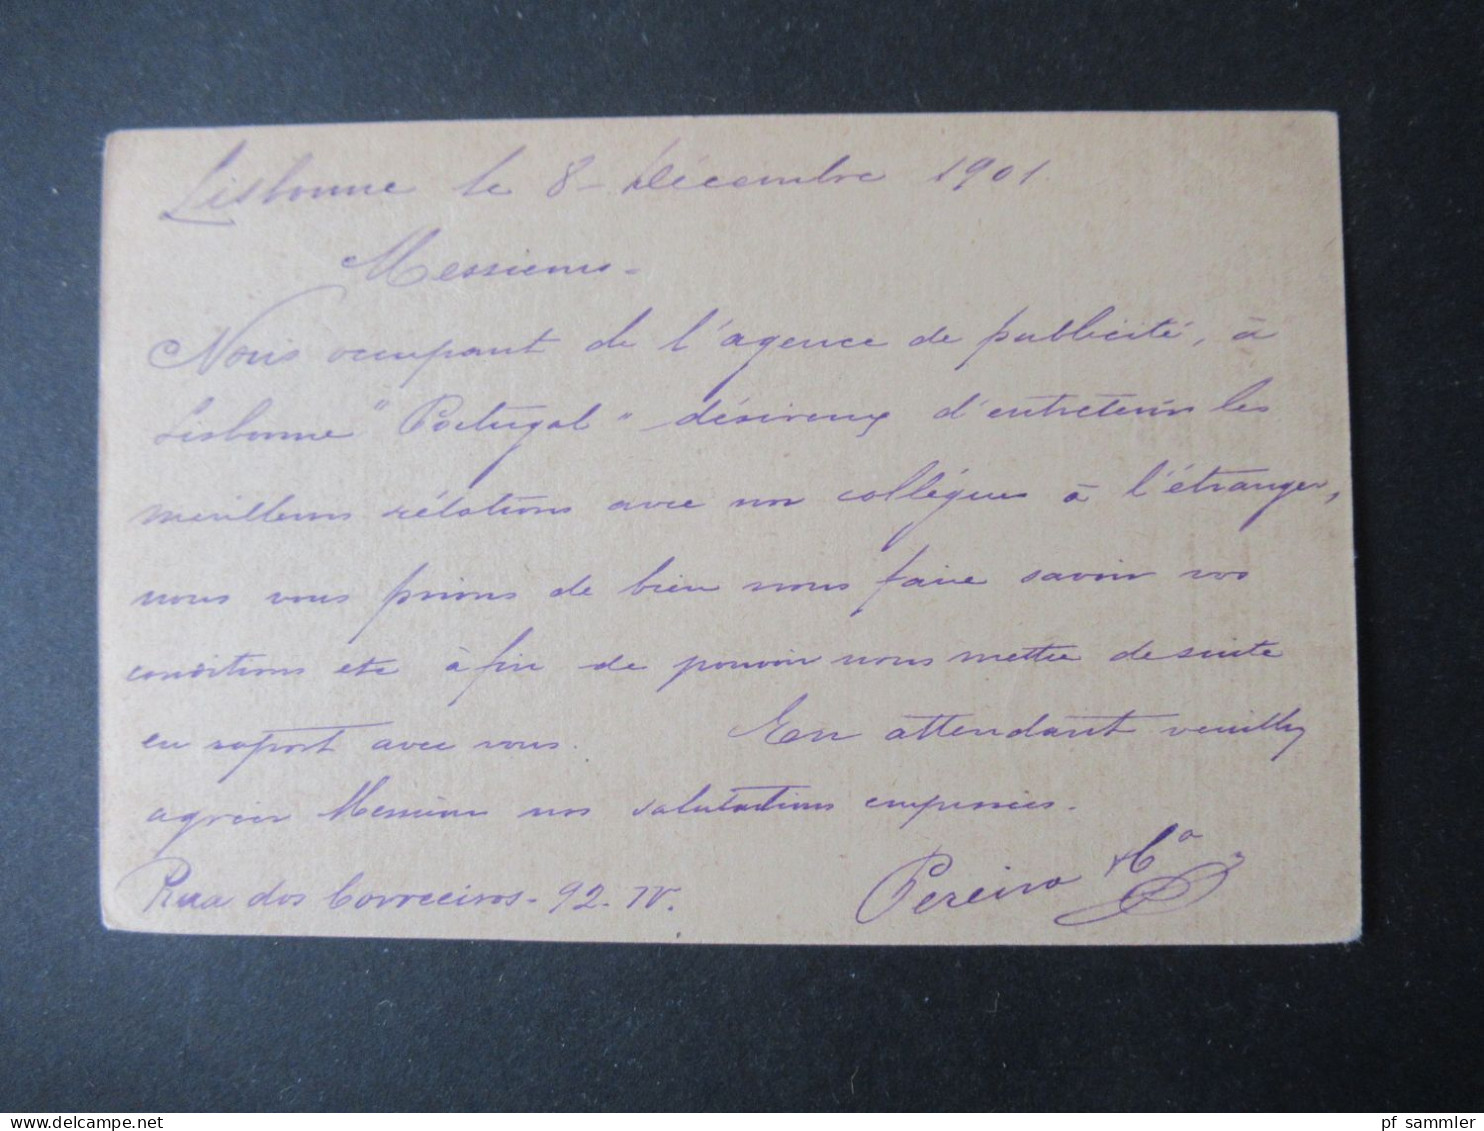 Lisbonne le 8 - Décembre 1901.
Messieurs -
Nous occupant de l'agence de publicité, à
Lisbonne "Portugal" désireux d'entretenir les
meilleurs rélations avec nos collégues à l'étranger,
nous vous prions de bien nous faire savoir vos
conditions etc à fin de pouvoir nous mettre de suite
en raport avec vous. En attendant veuillez
agreér Messieurs nos salutations empressées.
Rua dos Correeiros - 92 - IV.
Pereira & Cª
www.delcampe.net
pf_sammler